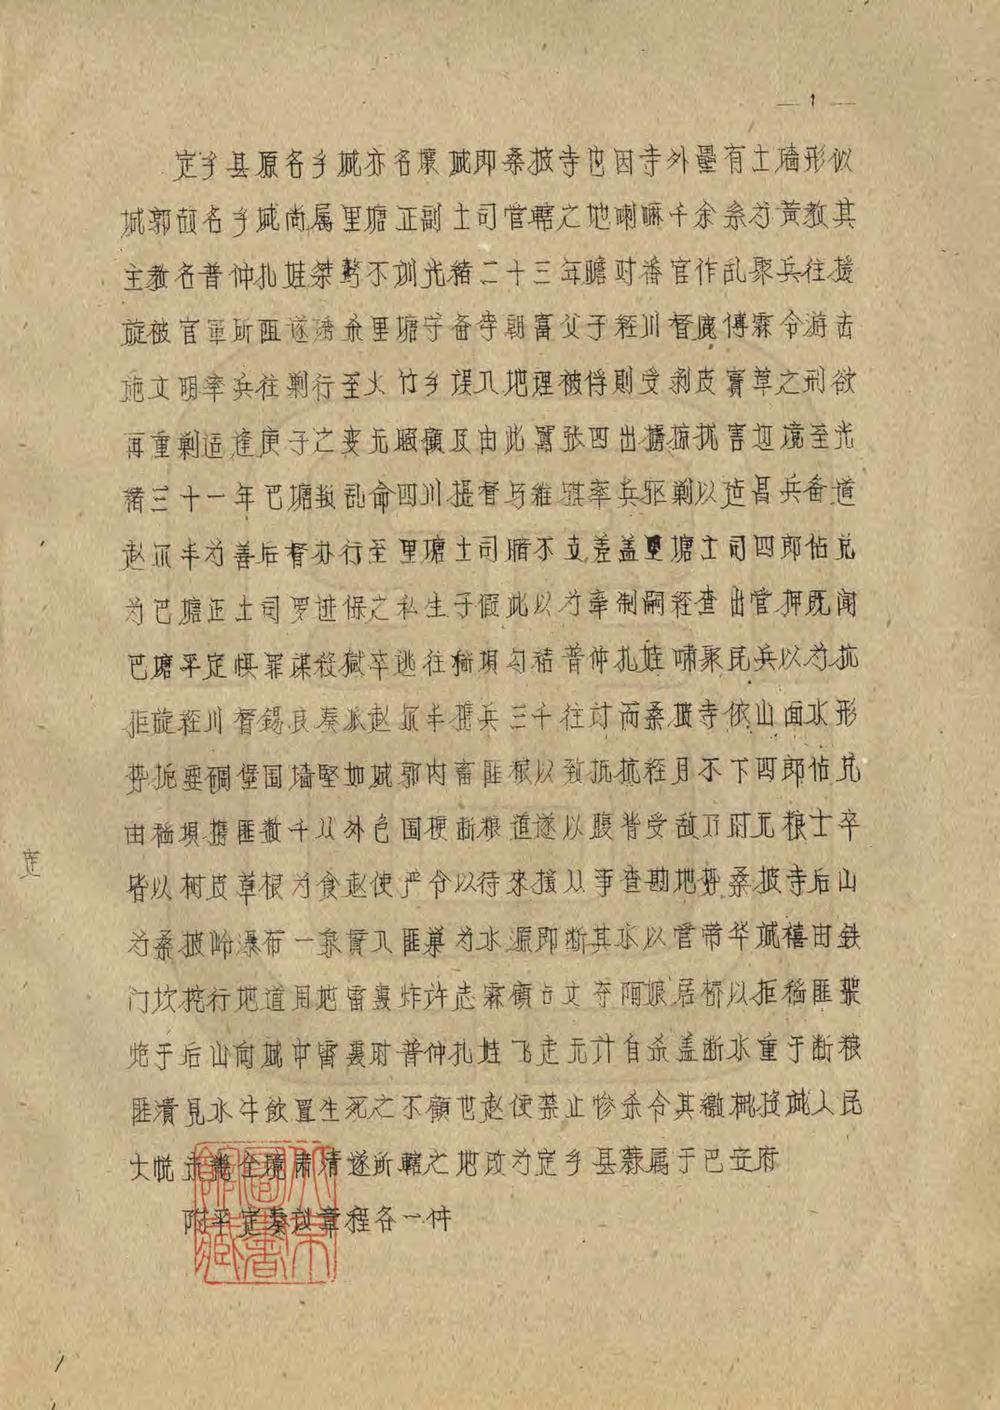 — 1 —
定乡县原名乡城亦名壤城即桑披寺也因寺外壘有土墙形似
城郭故名乡城尚属里塘正副土司管轄之地喇嘛千余系为黃教其
主教名普仲扎娃桀骜不訓光緒二十三年瞻对番官作乱聚兵往援
旋被官軍所阻遂誘杀里塘守备李朝富父子經川督鹿傅霖令游击
施文明率兵往剿行至火竹乡误入地理被俘則受剥皮實草之刑欲
再重剿适逢庚子之变无暇顧及由此囂张四出擄掠扰害边境至光
緒三十一年巴塘叛乱命四川提督马維騏率兵驱剿以建昌兵备道
赵尔丰为善后督办行至里塘土司暗不支差盖里塘土司四郎佔兑
为巴塘正土司罗进保之私生子假此以为牽制嗣經查出管押既闻
巴塘平定惧罪谋殺獄卒逃往稲垻勾結普仲扎娃嘯聚民兵以为抗
拒旋經川督錫良奏派赵尔丰攜兵三千往討而桑披寺依山面水形
势扼要碉堡围墙堅如城郭內畜匪粮以致抵抗經月不下四郎佔兑
由稲垻攜匪数千从外包围梗断粮道遂以腹背受敌万尉无粮士卒
皆以树皮草根为食赵使严令以待來援从事查勘地势桑披寺后山
为桑披岭瀑布一条貫入匪巢为水源即断其水以管带华城禧由鉄
门坎挖行地道用地雷轰炸许志霖顧占文夺阿娘居桥以拒稲匪架
炮于后山向城中雷轰时普仲扎娃飞走无計自杀盖断水重于断粮
匪潰見水牛飲置生死之不顧也赵使禁止惨杀令其繳械投誠人民
大悦赤幾全境肃清遂所轄之地改为定乡县隸属于巴安府
附平定奏議章程各一件
定